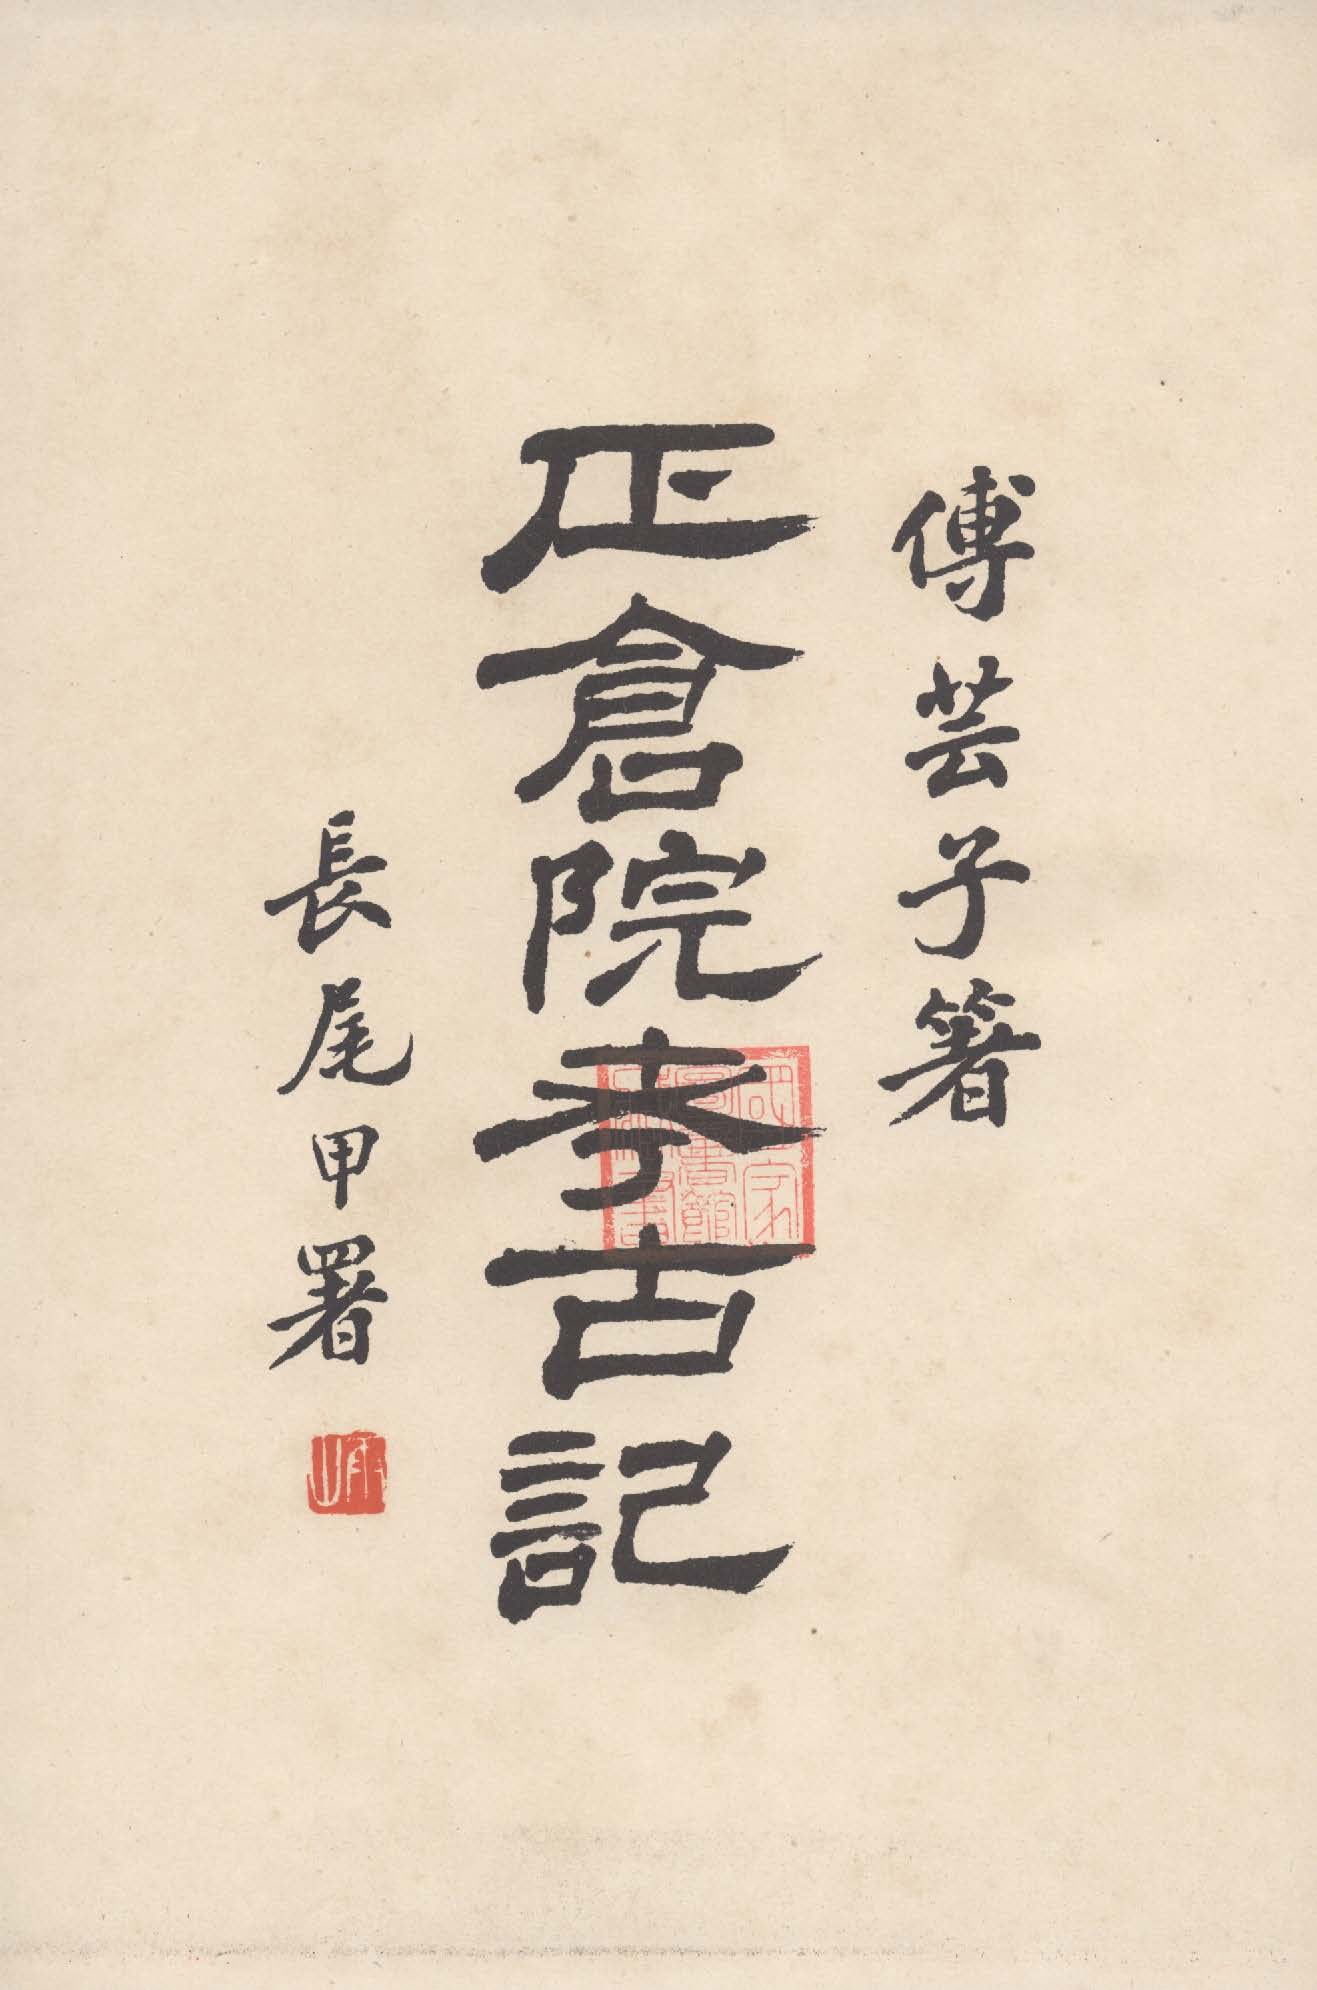 傅芸子箸
正倉院考古記
長尾甲署